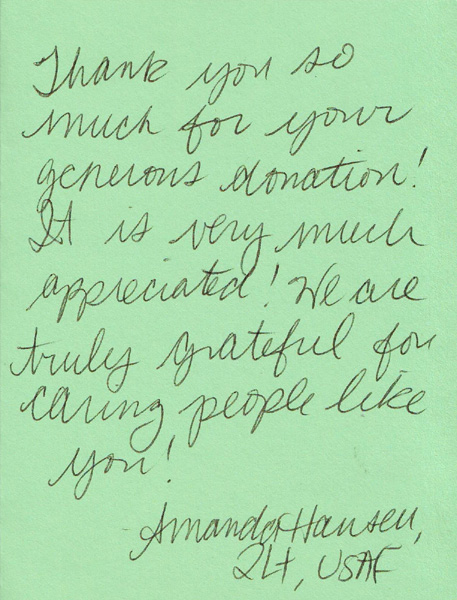 Thank you so
much for your
generous donation!
It is very much
appreciated! We are
truly grateful for
caring people like
you!
Amanda Hansen,
2Lt, USAF